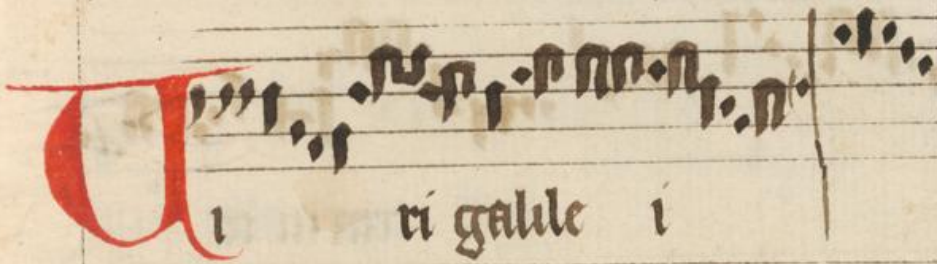 Ui ri galile i